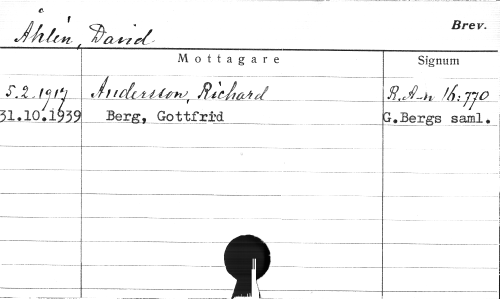 Brev.
Åhlén, David
Mottagare Signum
5.2.1917 Andersson, Richard R.A-n 16:770
31.10.1939 Berg, Gottfrid G.Bergs saml.